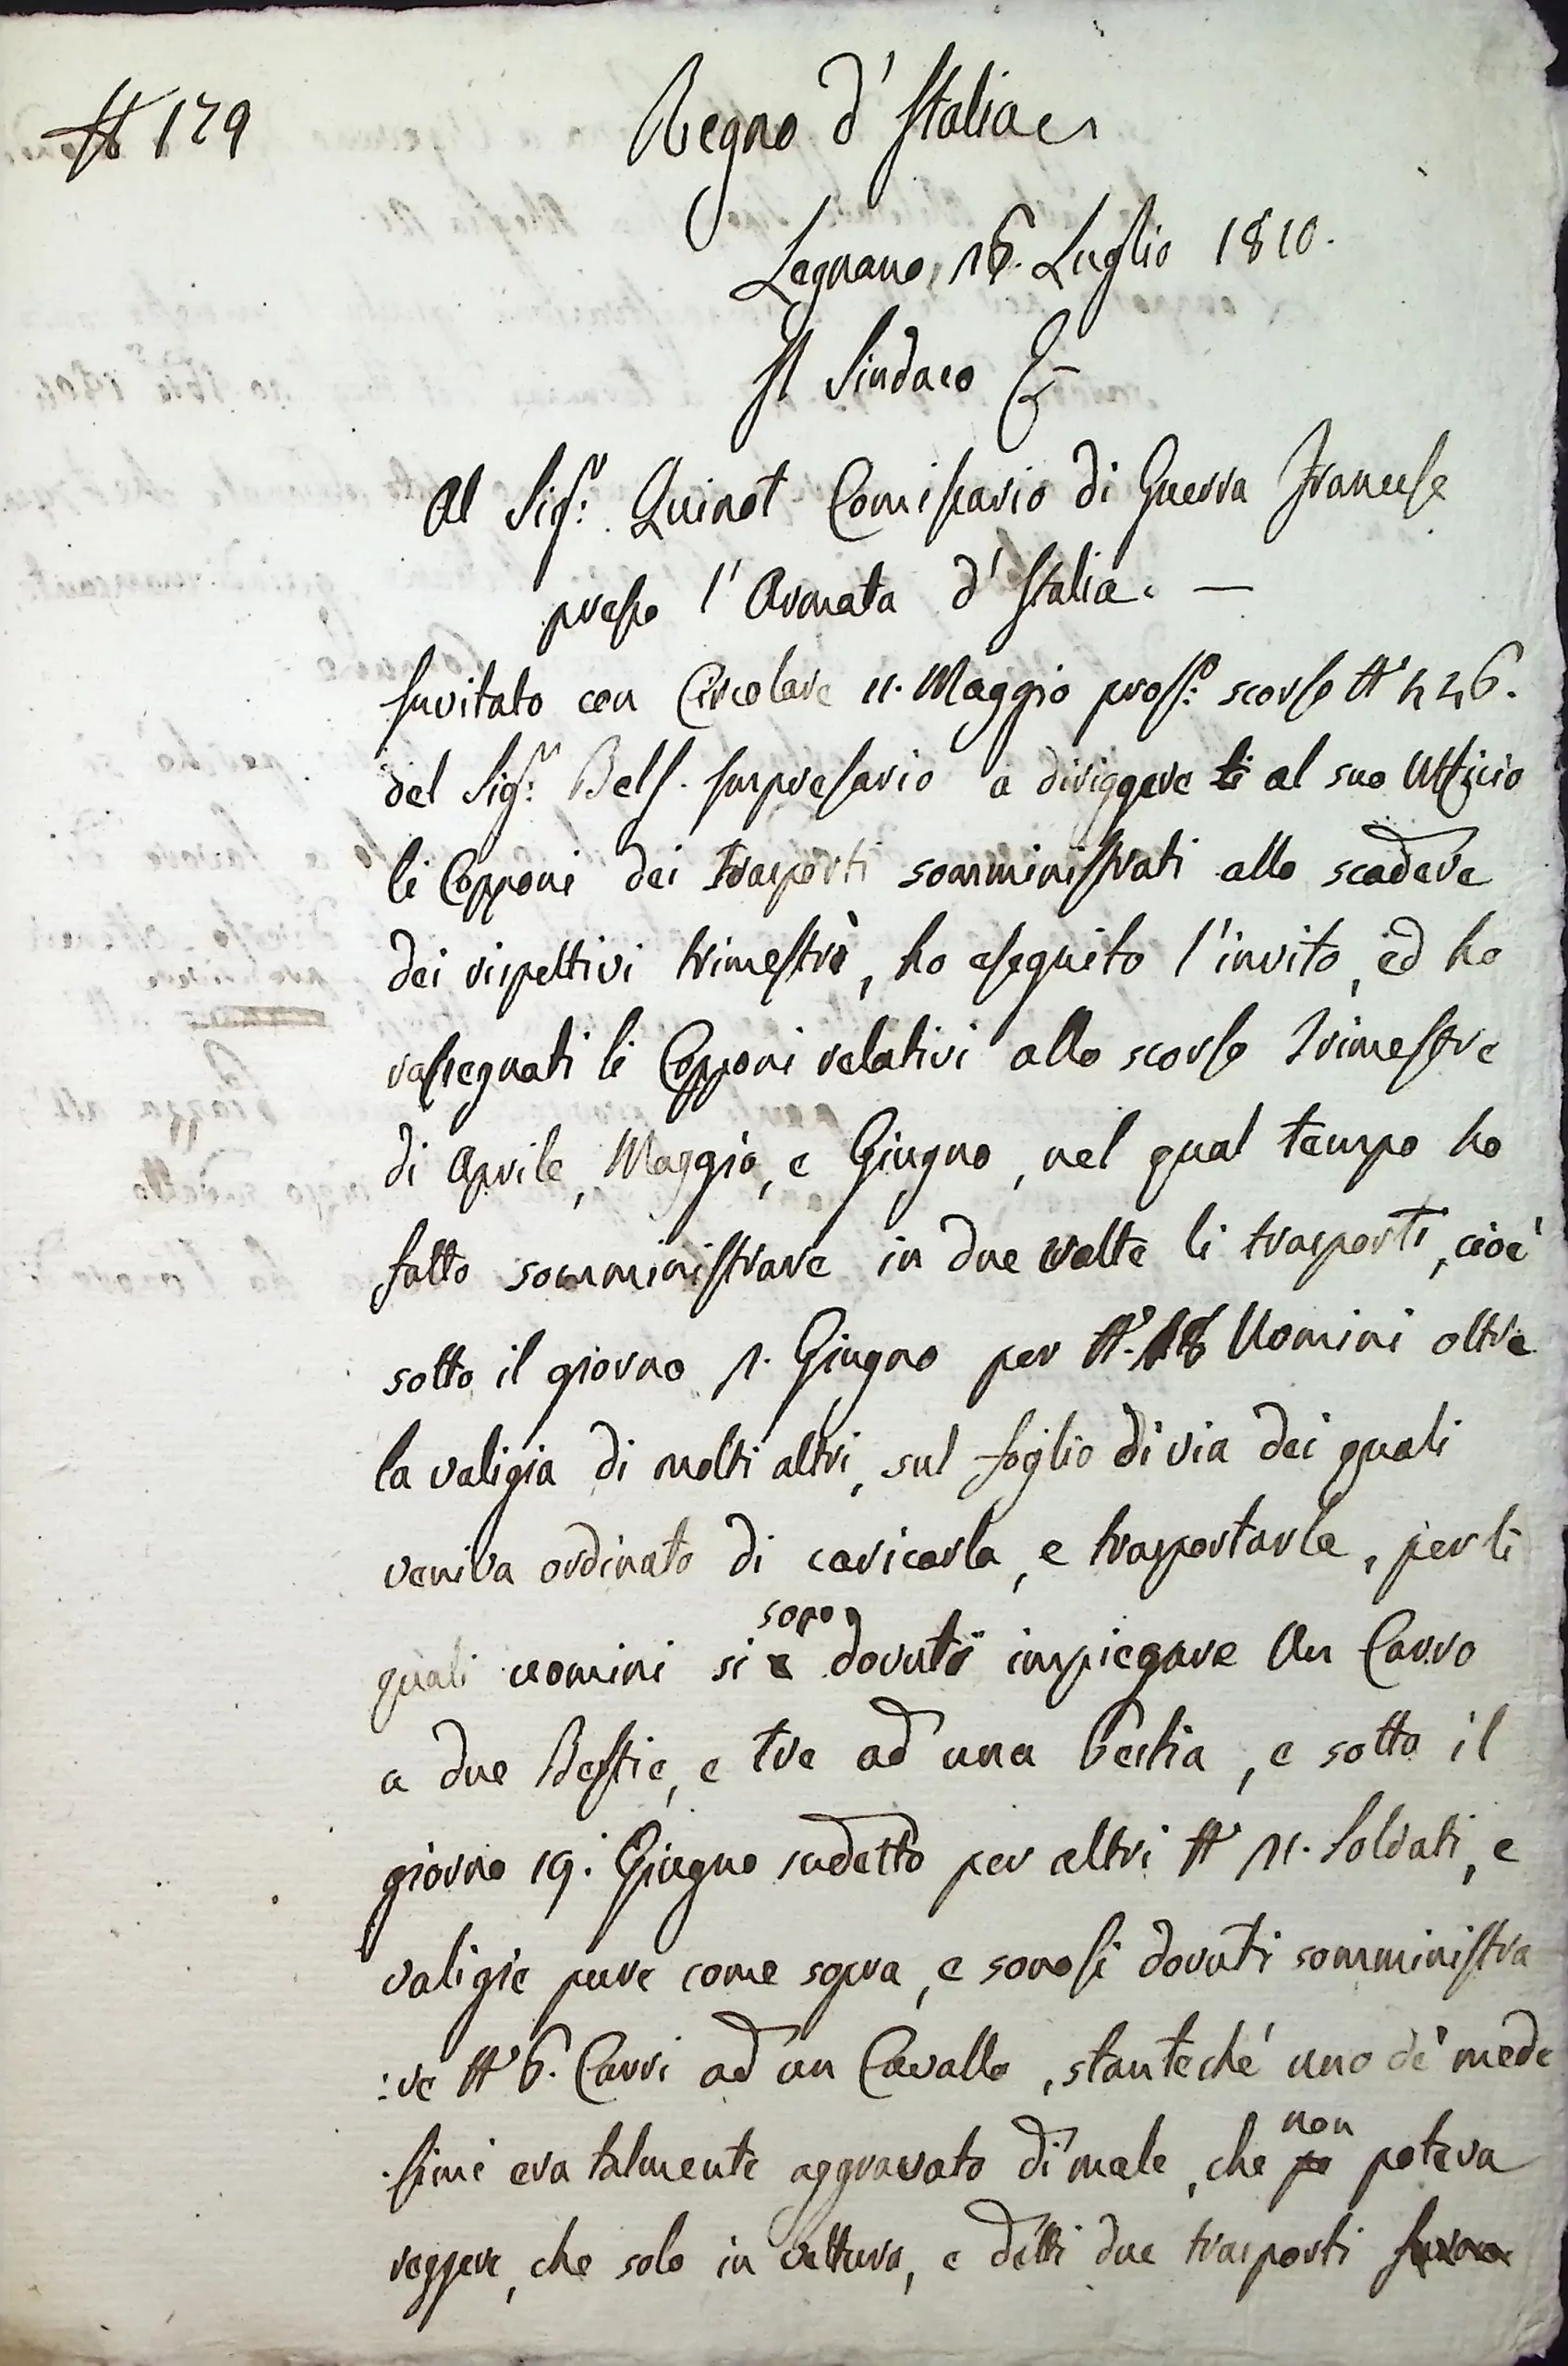 N 179
Regno d'Italia
Legnano, 16. Luglio 1810.
Il Sindaco
Al Sig.r Quinot Comissario di Guerra Francese
presso l'Armata d'Italia. —
Invitato con Circolare 11. Maggio pross.o scorso N.°
del Sig.r Impresario a diriggere al suo Uffizio
li Copponi dei trasporti somministrati allo scadere
dei rispettivi trimestri, ho eseguito l'invito, ed ho
rassegnati li Copponi relativi allo scorso Trimestre
di Aprile, Maggio, e Giugno, nel qual tempo ho
fatto somministrare in due volte li trasporti, cioè
sotto il giorno 1. Giugno per N.° 18 Uomini oltre
la valigia di molti altri, sul foglio di via dei quali
veniva ordinato di caricarla, e trasportarla, per li
quali uomini si sono dovuti impiegare un Carro
a due Bestie, e tre ad una bestia, e sotto il
giorno 19. Giugno sudetto per altri N° 11. Soldati, e
valigie pure come sopra, e sonosi dovuti somministra
:re N° 6. Carri ad un Cavallo, stanteché uno de' mede
:simi era talmente aggravato di male, che non poteva
reggere, che solo in vettura, e detti due trasporti